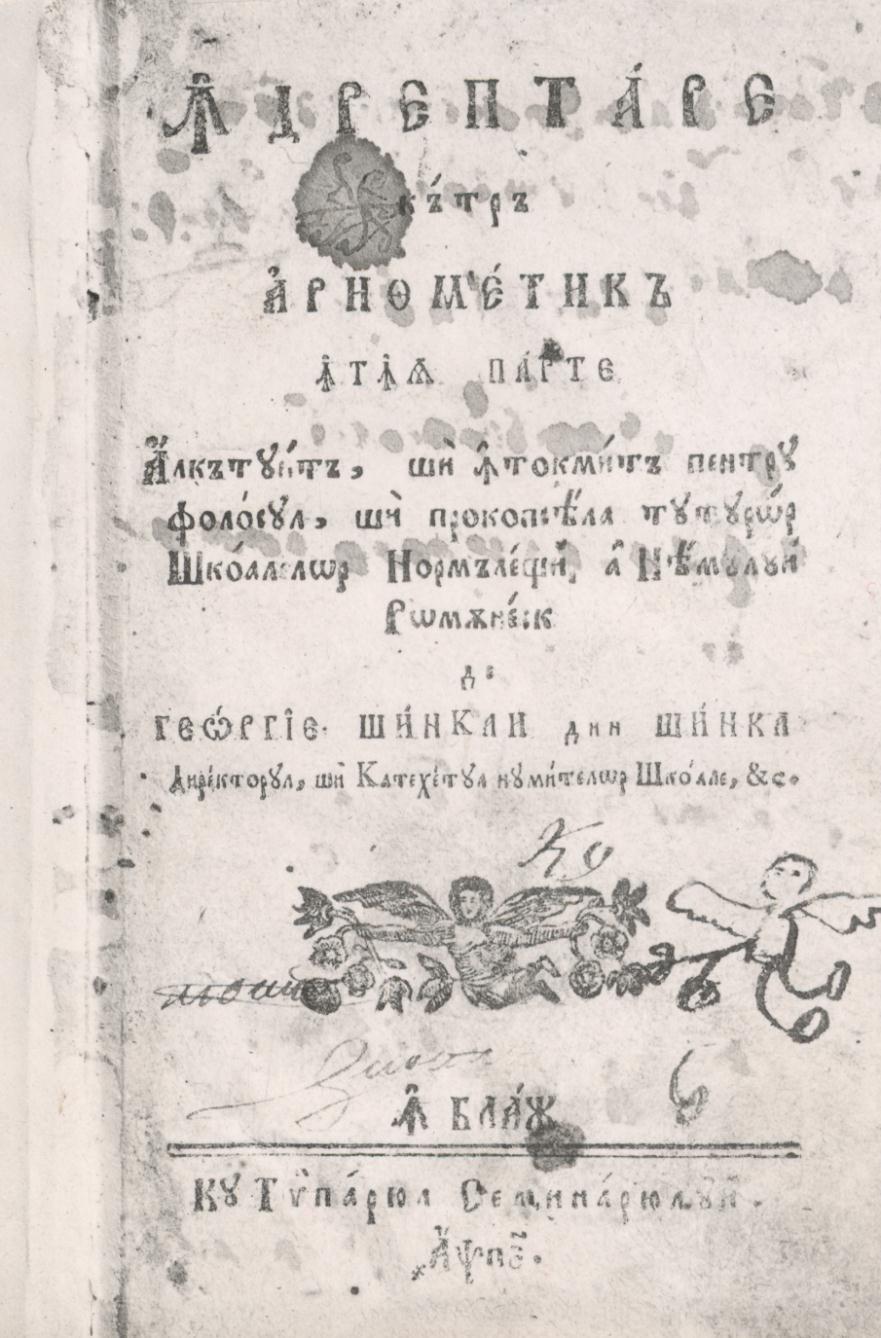 Ꙟ҆ДРЕПТА́РЕ
къ́тръ
А҆РИѲМЕ́ТИКЪ
Ꙟ҆ТꙞ҆Ѧ ПА́РТЕ
А҆лкътꙋи́тъ, шѝ ꙟ҆токми́тъ пентрꙋ
фоло́сꙋл, шѝ прокопсѣ́ла тꙋтꙋрѡ́р
Шко́алелѡр Нормъле́щй, а҆ Нѣ́мꙋлꙋй
Рѡмѫне́ск
де
ГЕѠ́РГІЕ ШИ́НКАИ дин ШИ́НКА
Дире́кторꙋл, шѝ Катехе́тꙋл нꙋми́телѡр Шко́але, &c.
Ꙟ҆ БЛА́Ж
Кꙋ Тѷпа́рюл Семина́рюлꙋй.
҂АѰПЕ.